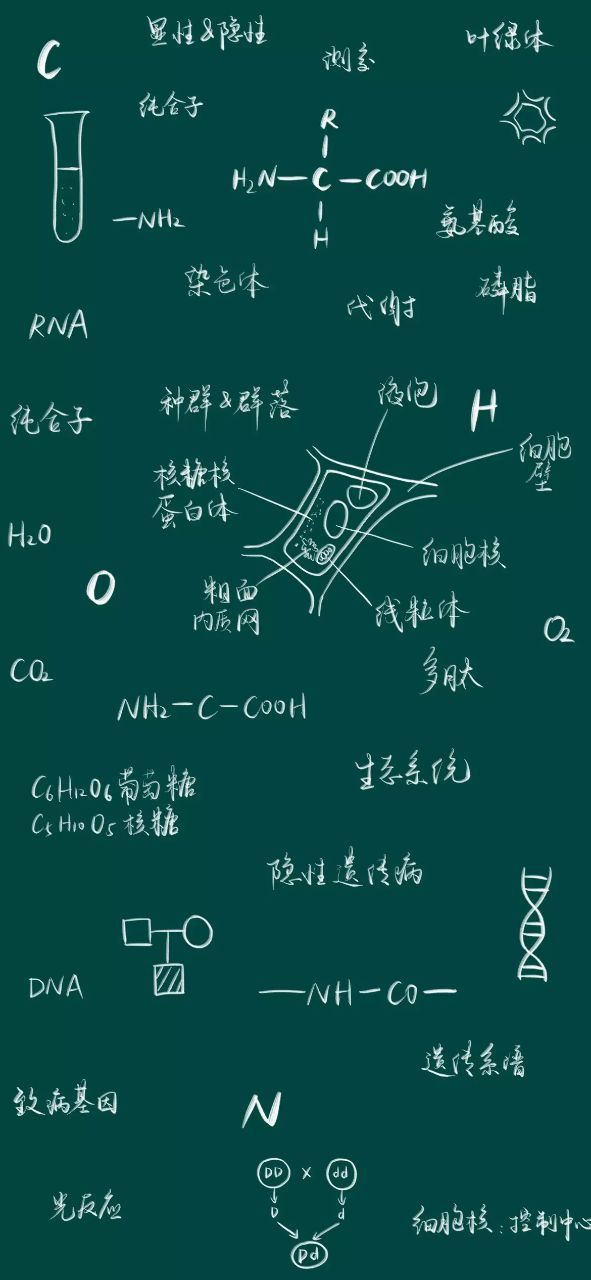 显性&隐性
叶绿体
C
测交
纯合子
R
H₂N—C—COOH
H
—NH₂
氨基酸
染色体
磷脂
代谢
RNA
种群&群落
液泡
H
纯合子
细胞
壁
核糖核
蛋白体
H₂O
细胞核
O
粗面
内质网
线粒体
O₂
CO₂
多肽
NH₂—C—COOH
生态系统
C₆H₁₂O₆葡萄糖
C₅H₁₀O₅核糖
隐性遗传病
DNA
—NH—CO—
遗传系谱
致病基因
N
DD × dd
D d
Dd
光反应
细胞核:控制中心